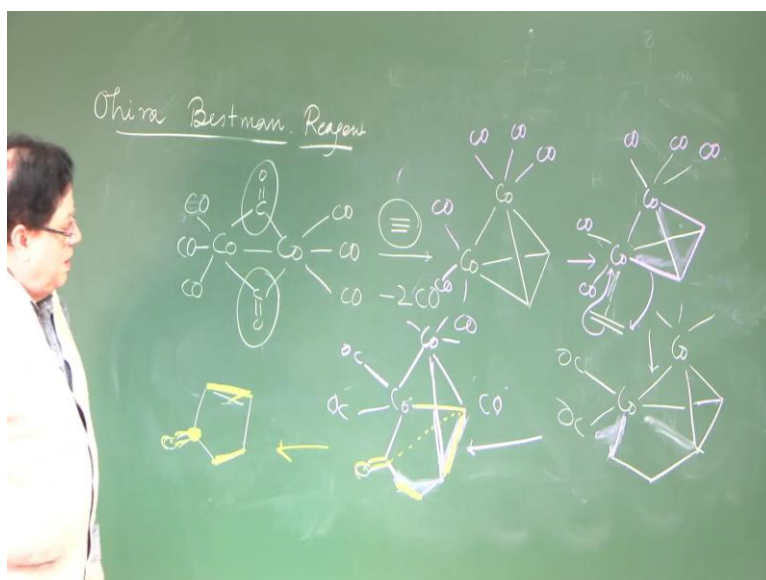 Ohira Bestman. Reagent
CO CO CO
CO CO CO
O
C
Co
CO
CO
Co
CO
CO
CO Co Co CO
≡
Co
Co
CO
CO
CO
-2CO
CO
C
O
Co
CO
OC
Co
OC
OC
Co
CO
OC
Co
O
O